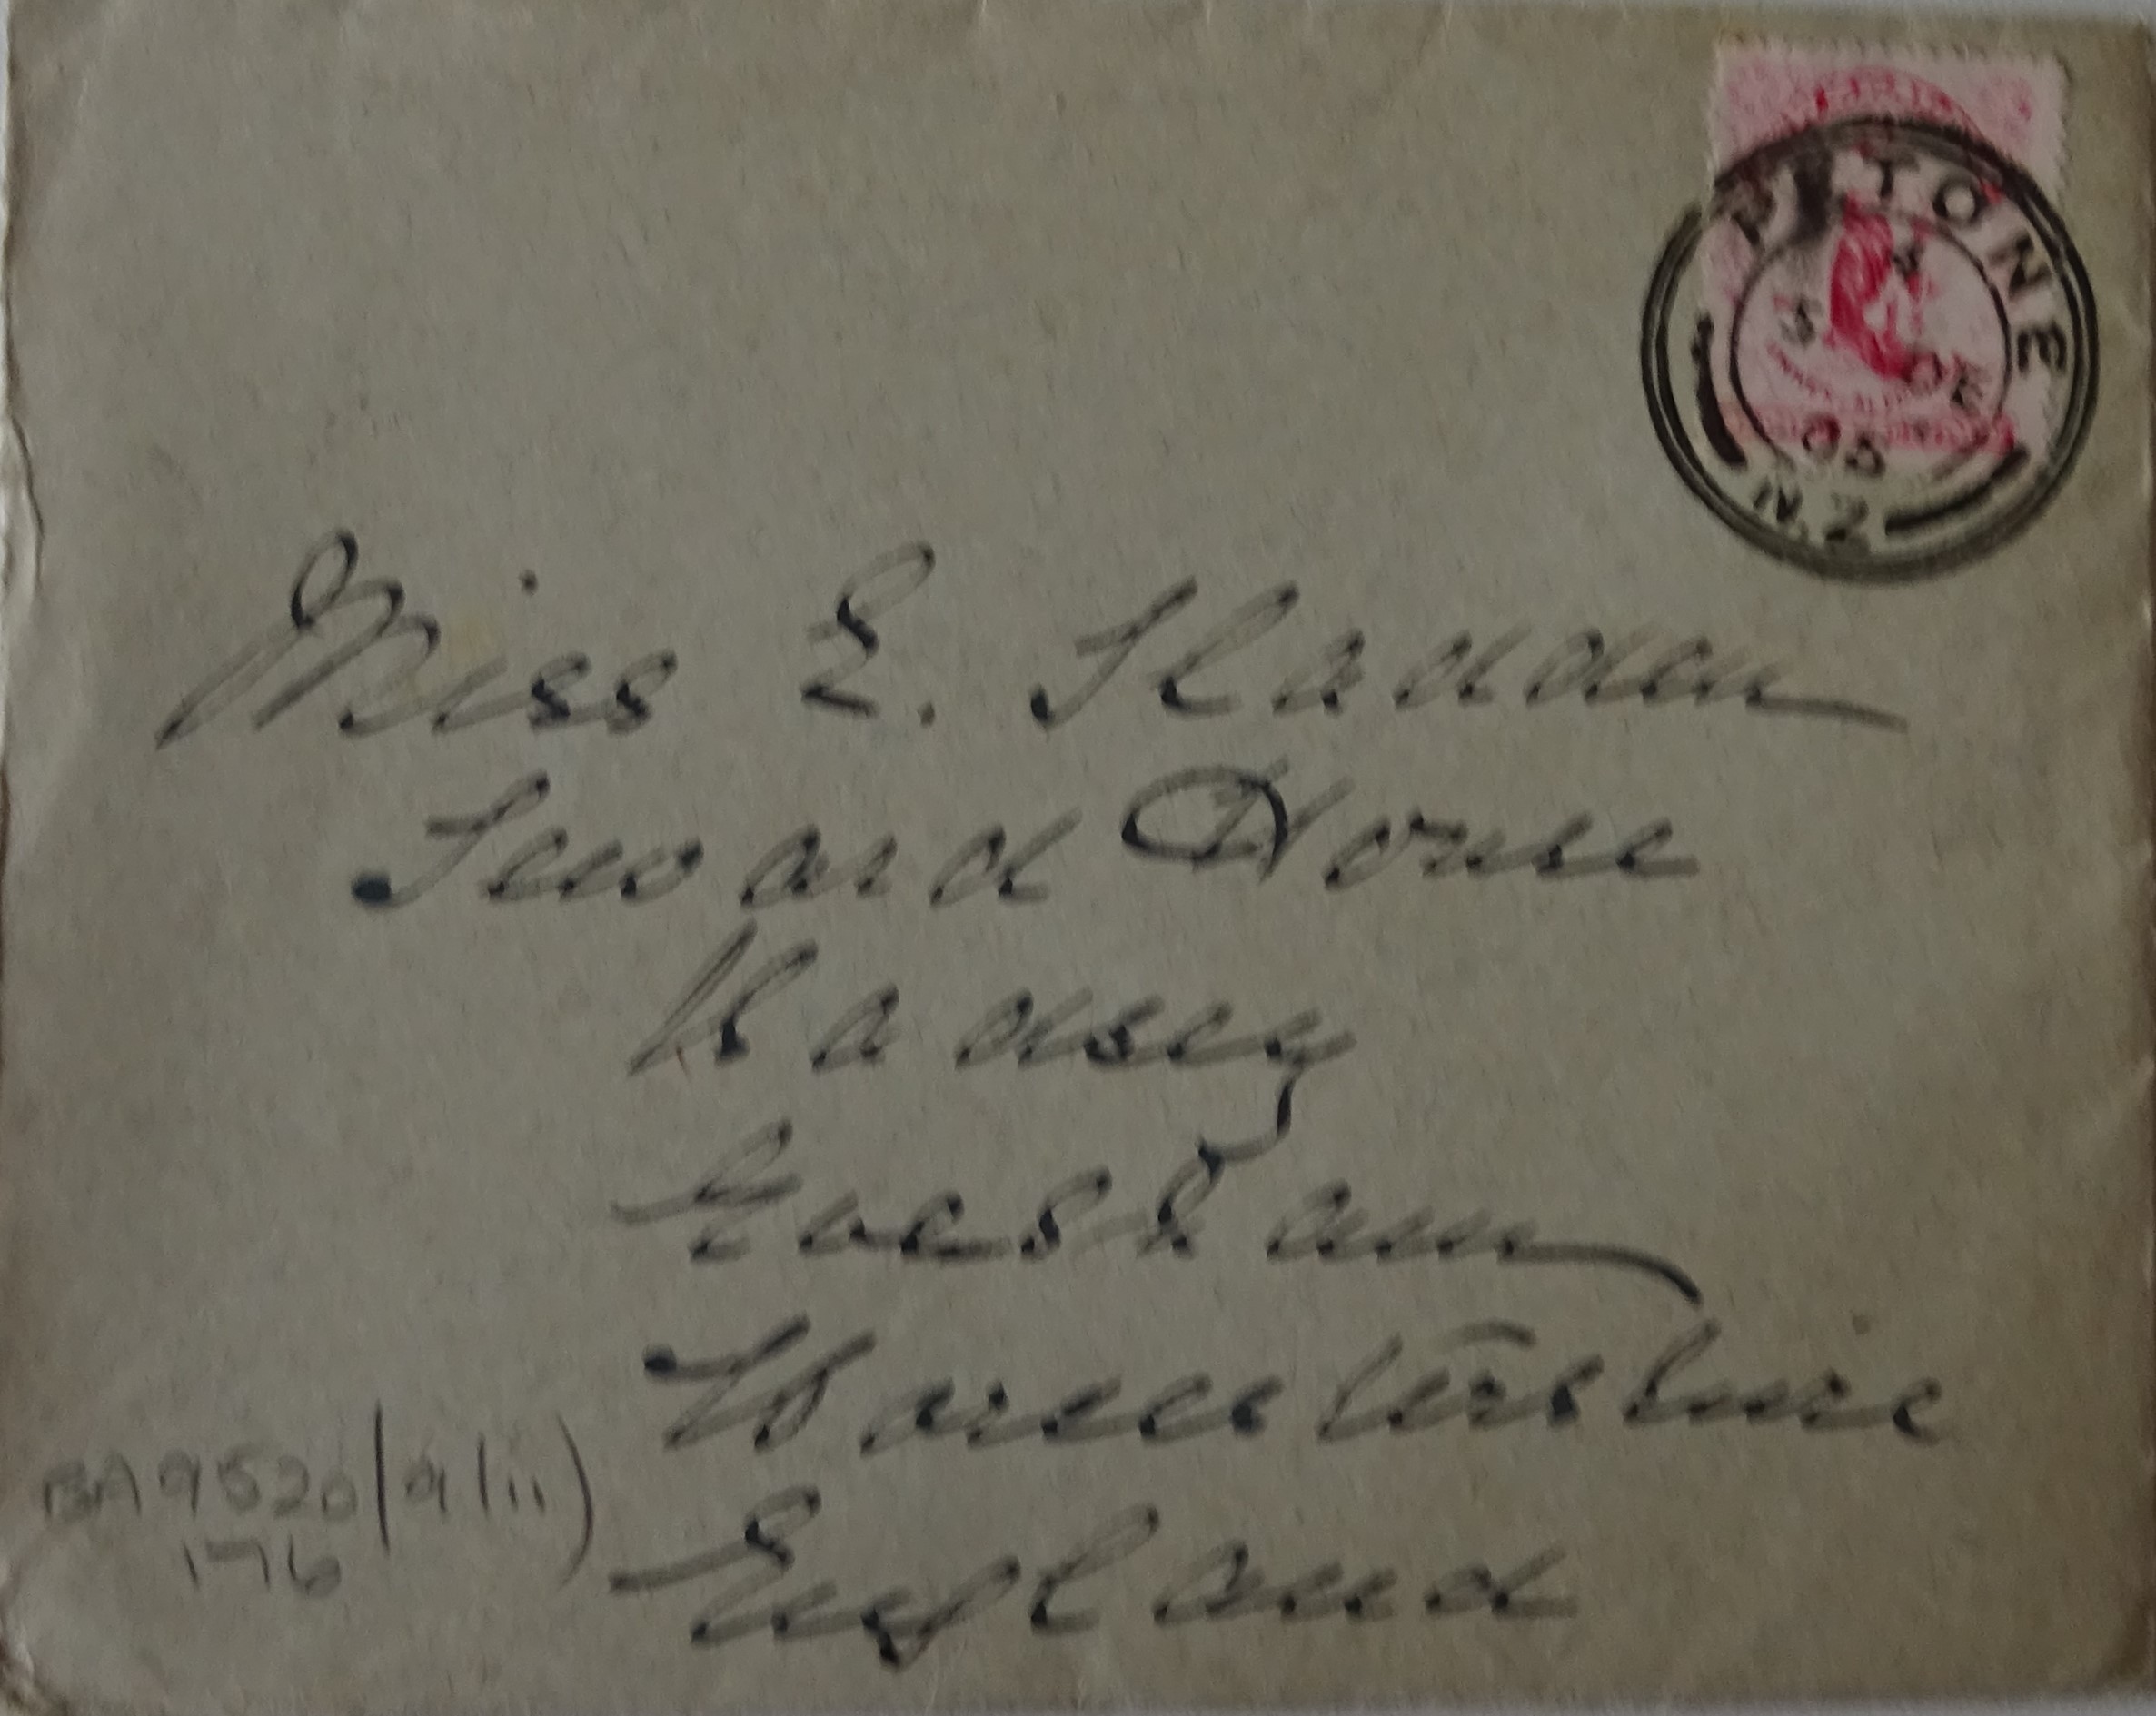 PETONE
5 DE
06
N.Z
Miss E. Sladden
Seward House
Badsey
Evesham
Worcestershire
England
BA9520/9(11)
176